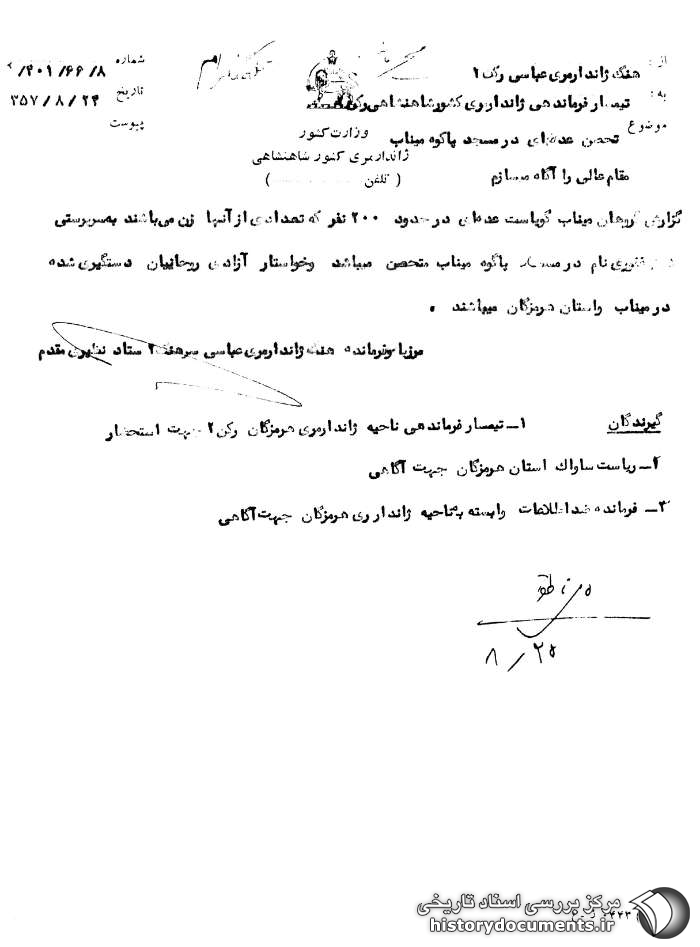 از : هنگ ژاندارمری عباسی رکن ۱
به : تیمسار فرماندهی ژاندارمری کشور شاهنشاهی
موضوع تحصن عده‌ای در مسجد پاکوه میناب
شماره ۴۰۱/۶۶/۸
تاریخ ۳۵۷/۸/۲۴
پیوست
وزارت کشور
ژاندارمری کشور شاهنشاهی
( تلفن .............. )
تلگرام
مقام عالی را آگاه میسازم
گزارش گروهان میناب گویاست عده‌ای در حدود ۲۰۰ نفر که تعدادی از آنها زن می‌باشند به‌سرپرستی
نام در مسجد پاکوه میناب متحصن میباشد وخواستار آزادی روحانیان دستگیری شده
در میناب واستان هرمزگان میباشند .
مرزبا نوفرمانده هنگ ژاندارمری عباسی سرهنگ ۲ ستاد نظیری مقدم
گیرندگان
۱ــ تیمسار فرماندهی ناحیه ژاندارمری هرمزگان رکن ۲ جهت استحضار
۲ــ ریاست ساواک استان هرمزگان جهت آگاهی
۳ــ فرمانده ضداطلاعات وابسته بناحیه ژاندارمری هرمزگان جهت آگاهی
۸/۲۵
مرکز بررسی اسناد تاریخی
historydocuments.ir